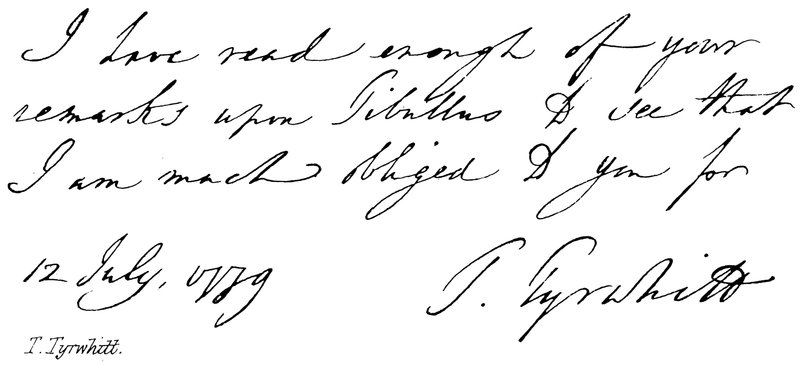 I have read enough of your
remarks upon Tibullus to see that
I am much obliged to you for
12 July, 1779
T. Tyrwhitt
T. Tyrwhitt.